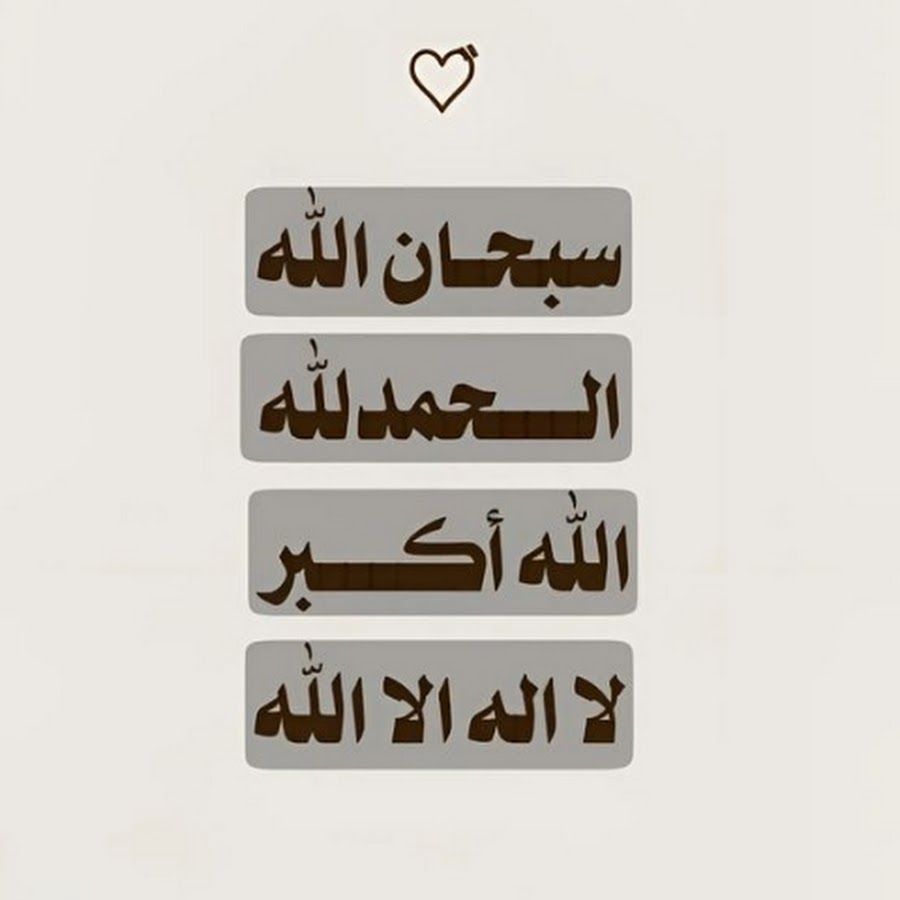 سبحان الله
الحمدلله
الله أكبر
لا اله الا الله